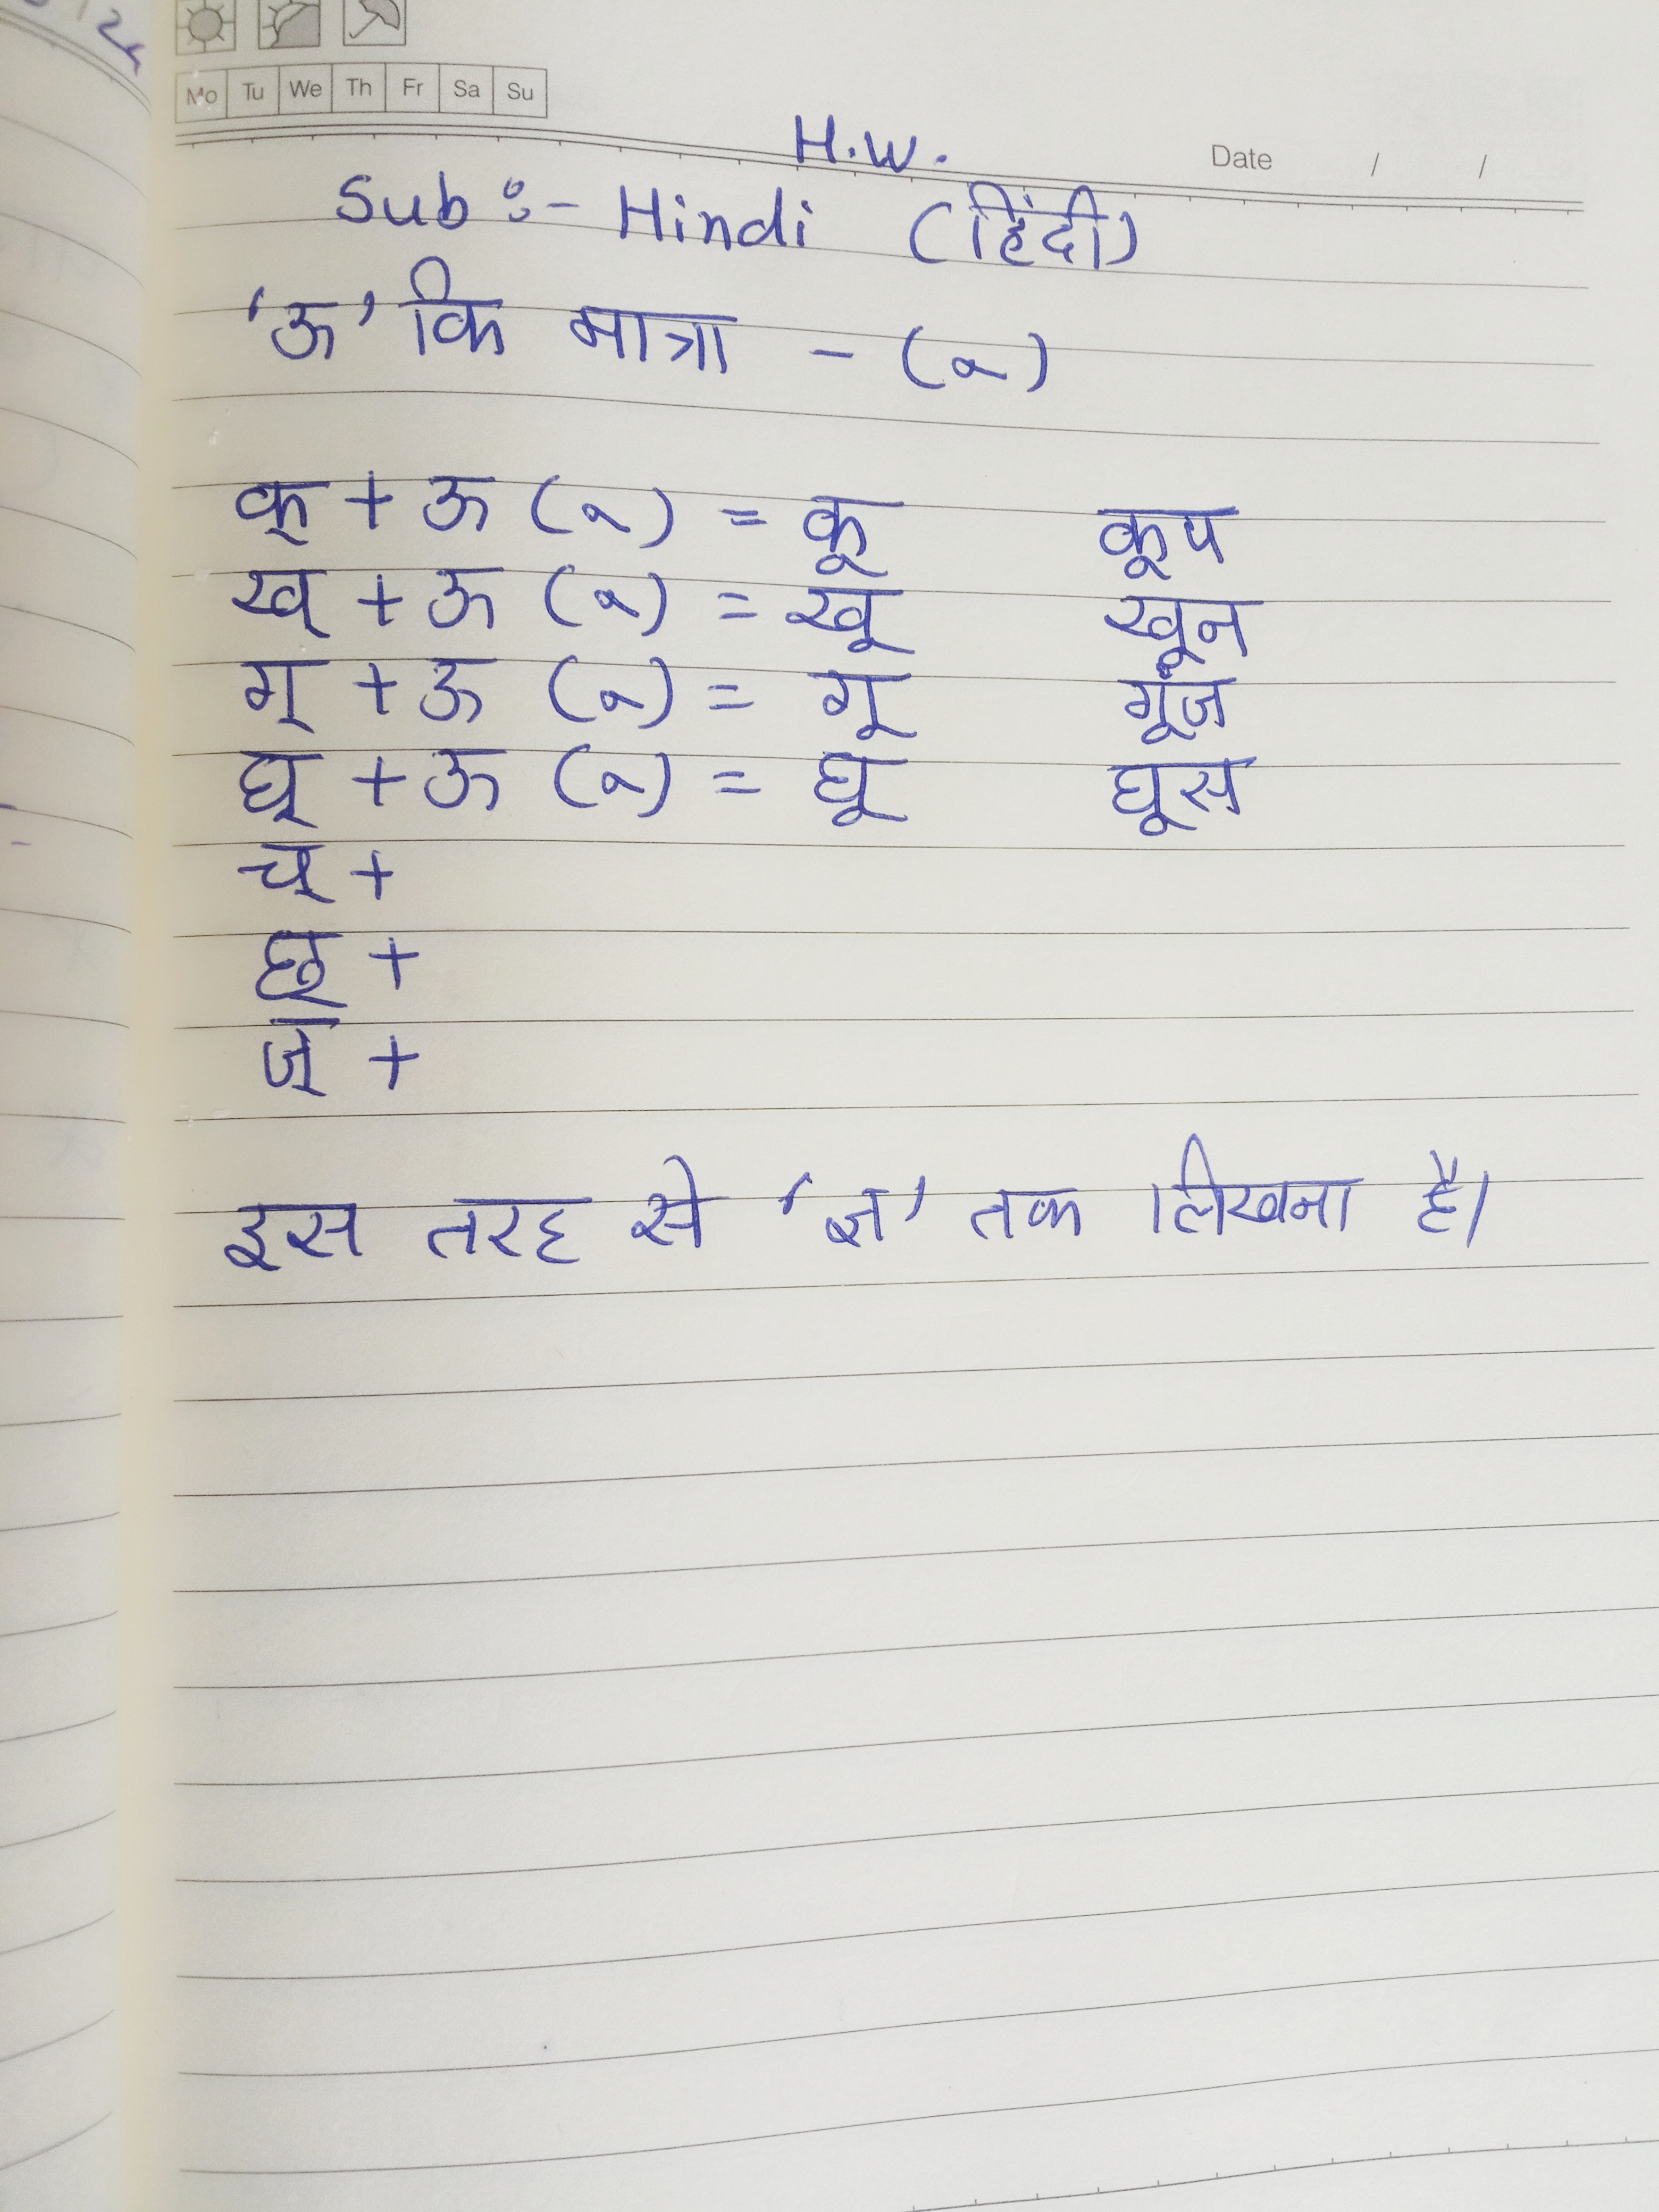 24
Mo Tu We Th Fr Sa Su
H.W.
Date / /
Sub :- Hindi (हिंदी)
'ऊ' कि मात्रा - (ू)
क् + ऊ (ू) = कू कूप
ख् + ऊ (ू) = खू खून
ग् + ऊ (ू) = गू गूंज
घ् + ऊ (ू) = घू घूस
च् +
छ् +
ज् +
इस तरह से 'ज्ञ' तक लिखना है।